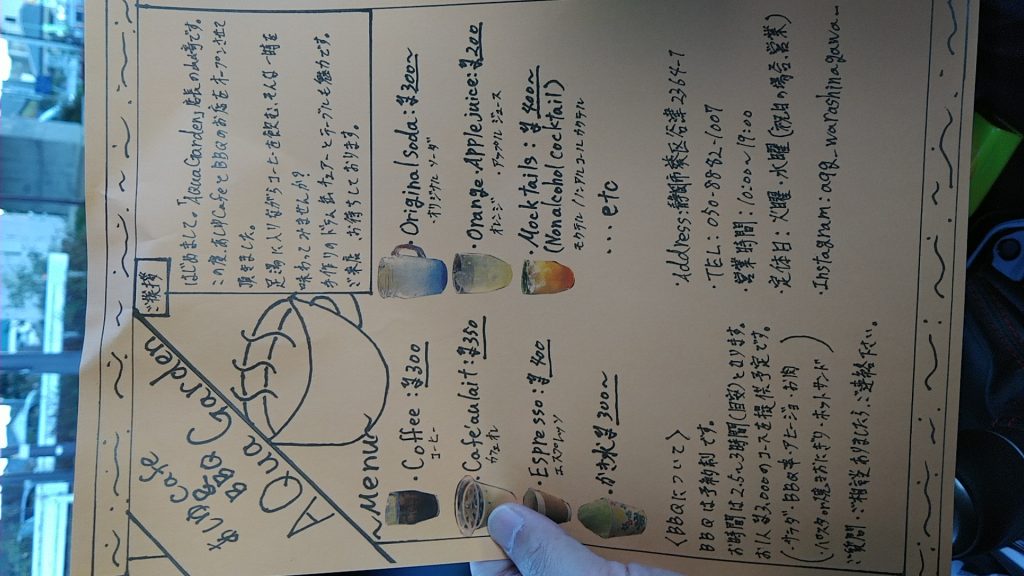 あしゆCafe
BBQ Garden
AQua
ご挨拶
はじめまして。「AquaGarden」店長の山崎です。
この度、あしゆCafeとBBQのお店をオープンさせて
頂きました。
足湯に入りながらコーヒーを飲む、そんな一時を
味わってみませんか?
手作りのドラム缶チェアーとテーブルも魅力です。
ご来店、お待ちしております。
Menu
・Coffee:¥300
コーヒー
・Cafeaulait:¥350
カフェオレ
・Espresso:¥400
エスプレッソ
・かき氷¥300〜
・Original Soda:¥300〜
・オリジナル ソーダ
・Orange.Applejuice:¥200
オレンジ ・アップル ジュース
・Mocktails:¥400〜
(Nonalcohol Cocktail)
モクテル ノンアルコール カクテル
・・・・etc
〈BBQについて〉
BBQは予約制です。
お時間は2.5〜3時間(目安)となります。
お1人¥3,000のコースを提供予定です。
(・サラダ・BBQ串・アヒージョ・お肉
・パスタor焼きおにぎり・ホットサンド)
ご質問・ご相談ありましたら、ご連絡下さい。
・Address:静岡市葵区谷津2364-7
・TEL:050-8882-1007
・営業時間:10:00〜19:00
・定休日:火曜・水曜(祝日の場合、営業)
・Instagram:aqg_warashinagawa